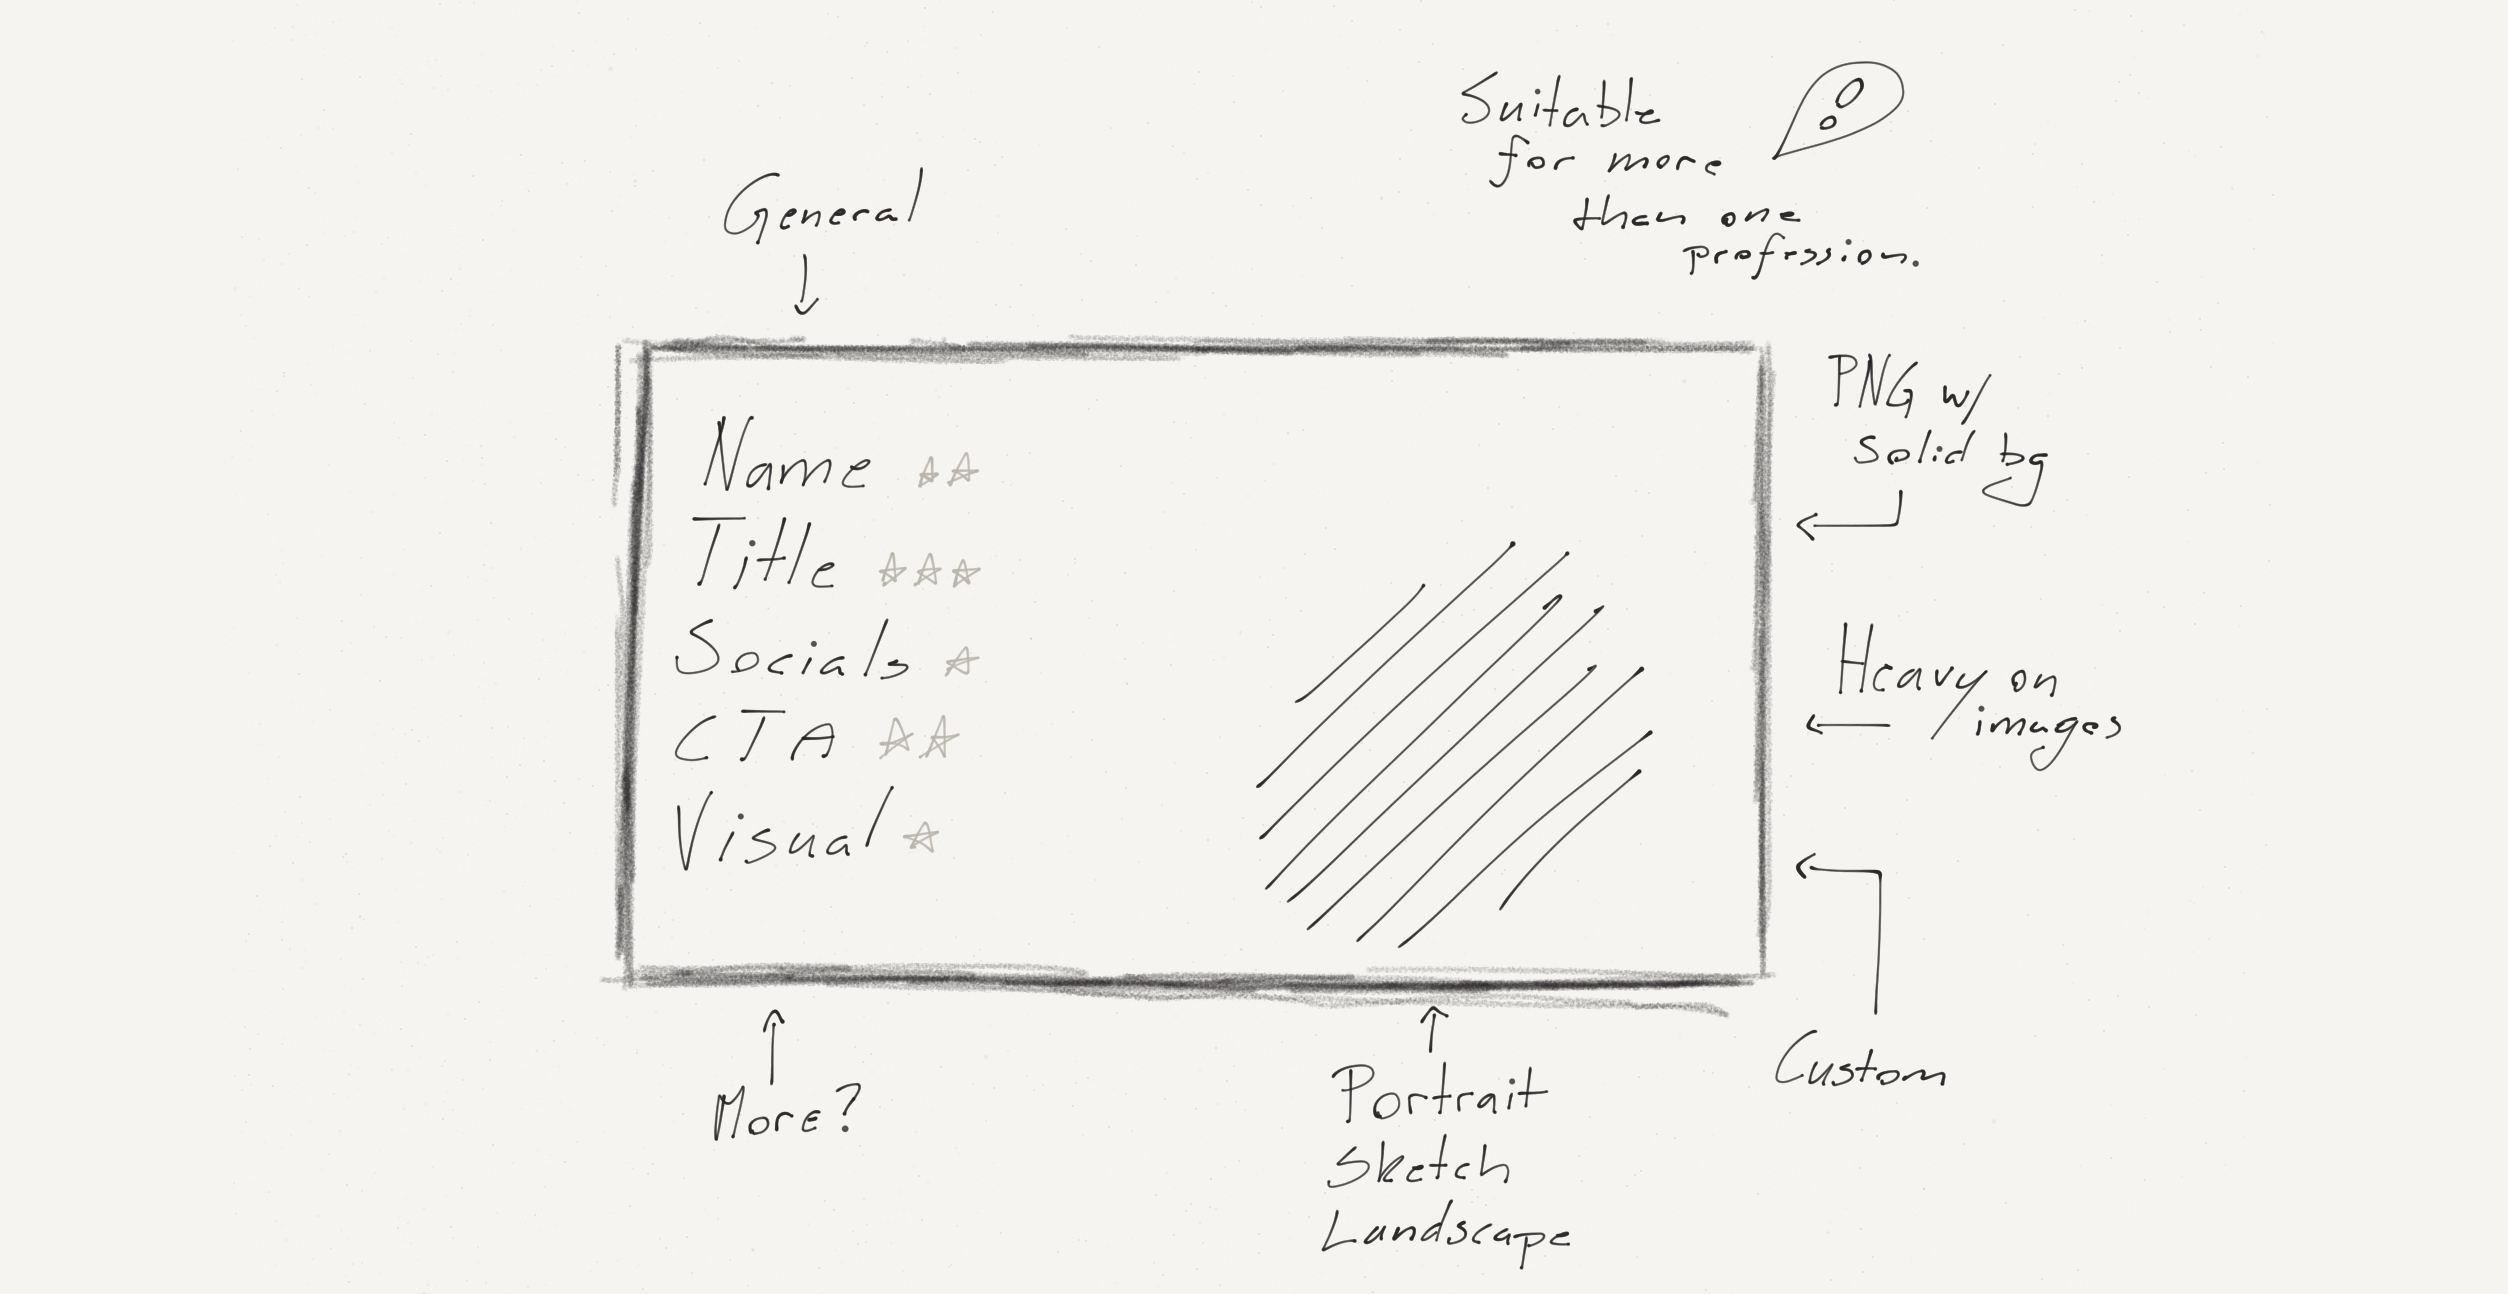 Suitable
for more
then one
profession.
General
Name
Title
Socials
CTA
Visual
PNG w/
Solid bg
Heavy on
images
Custom
More?
Portrait
Sketch
Landscape